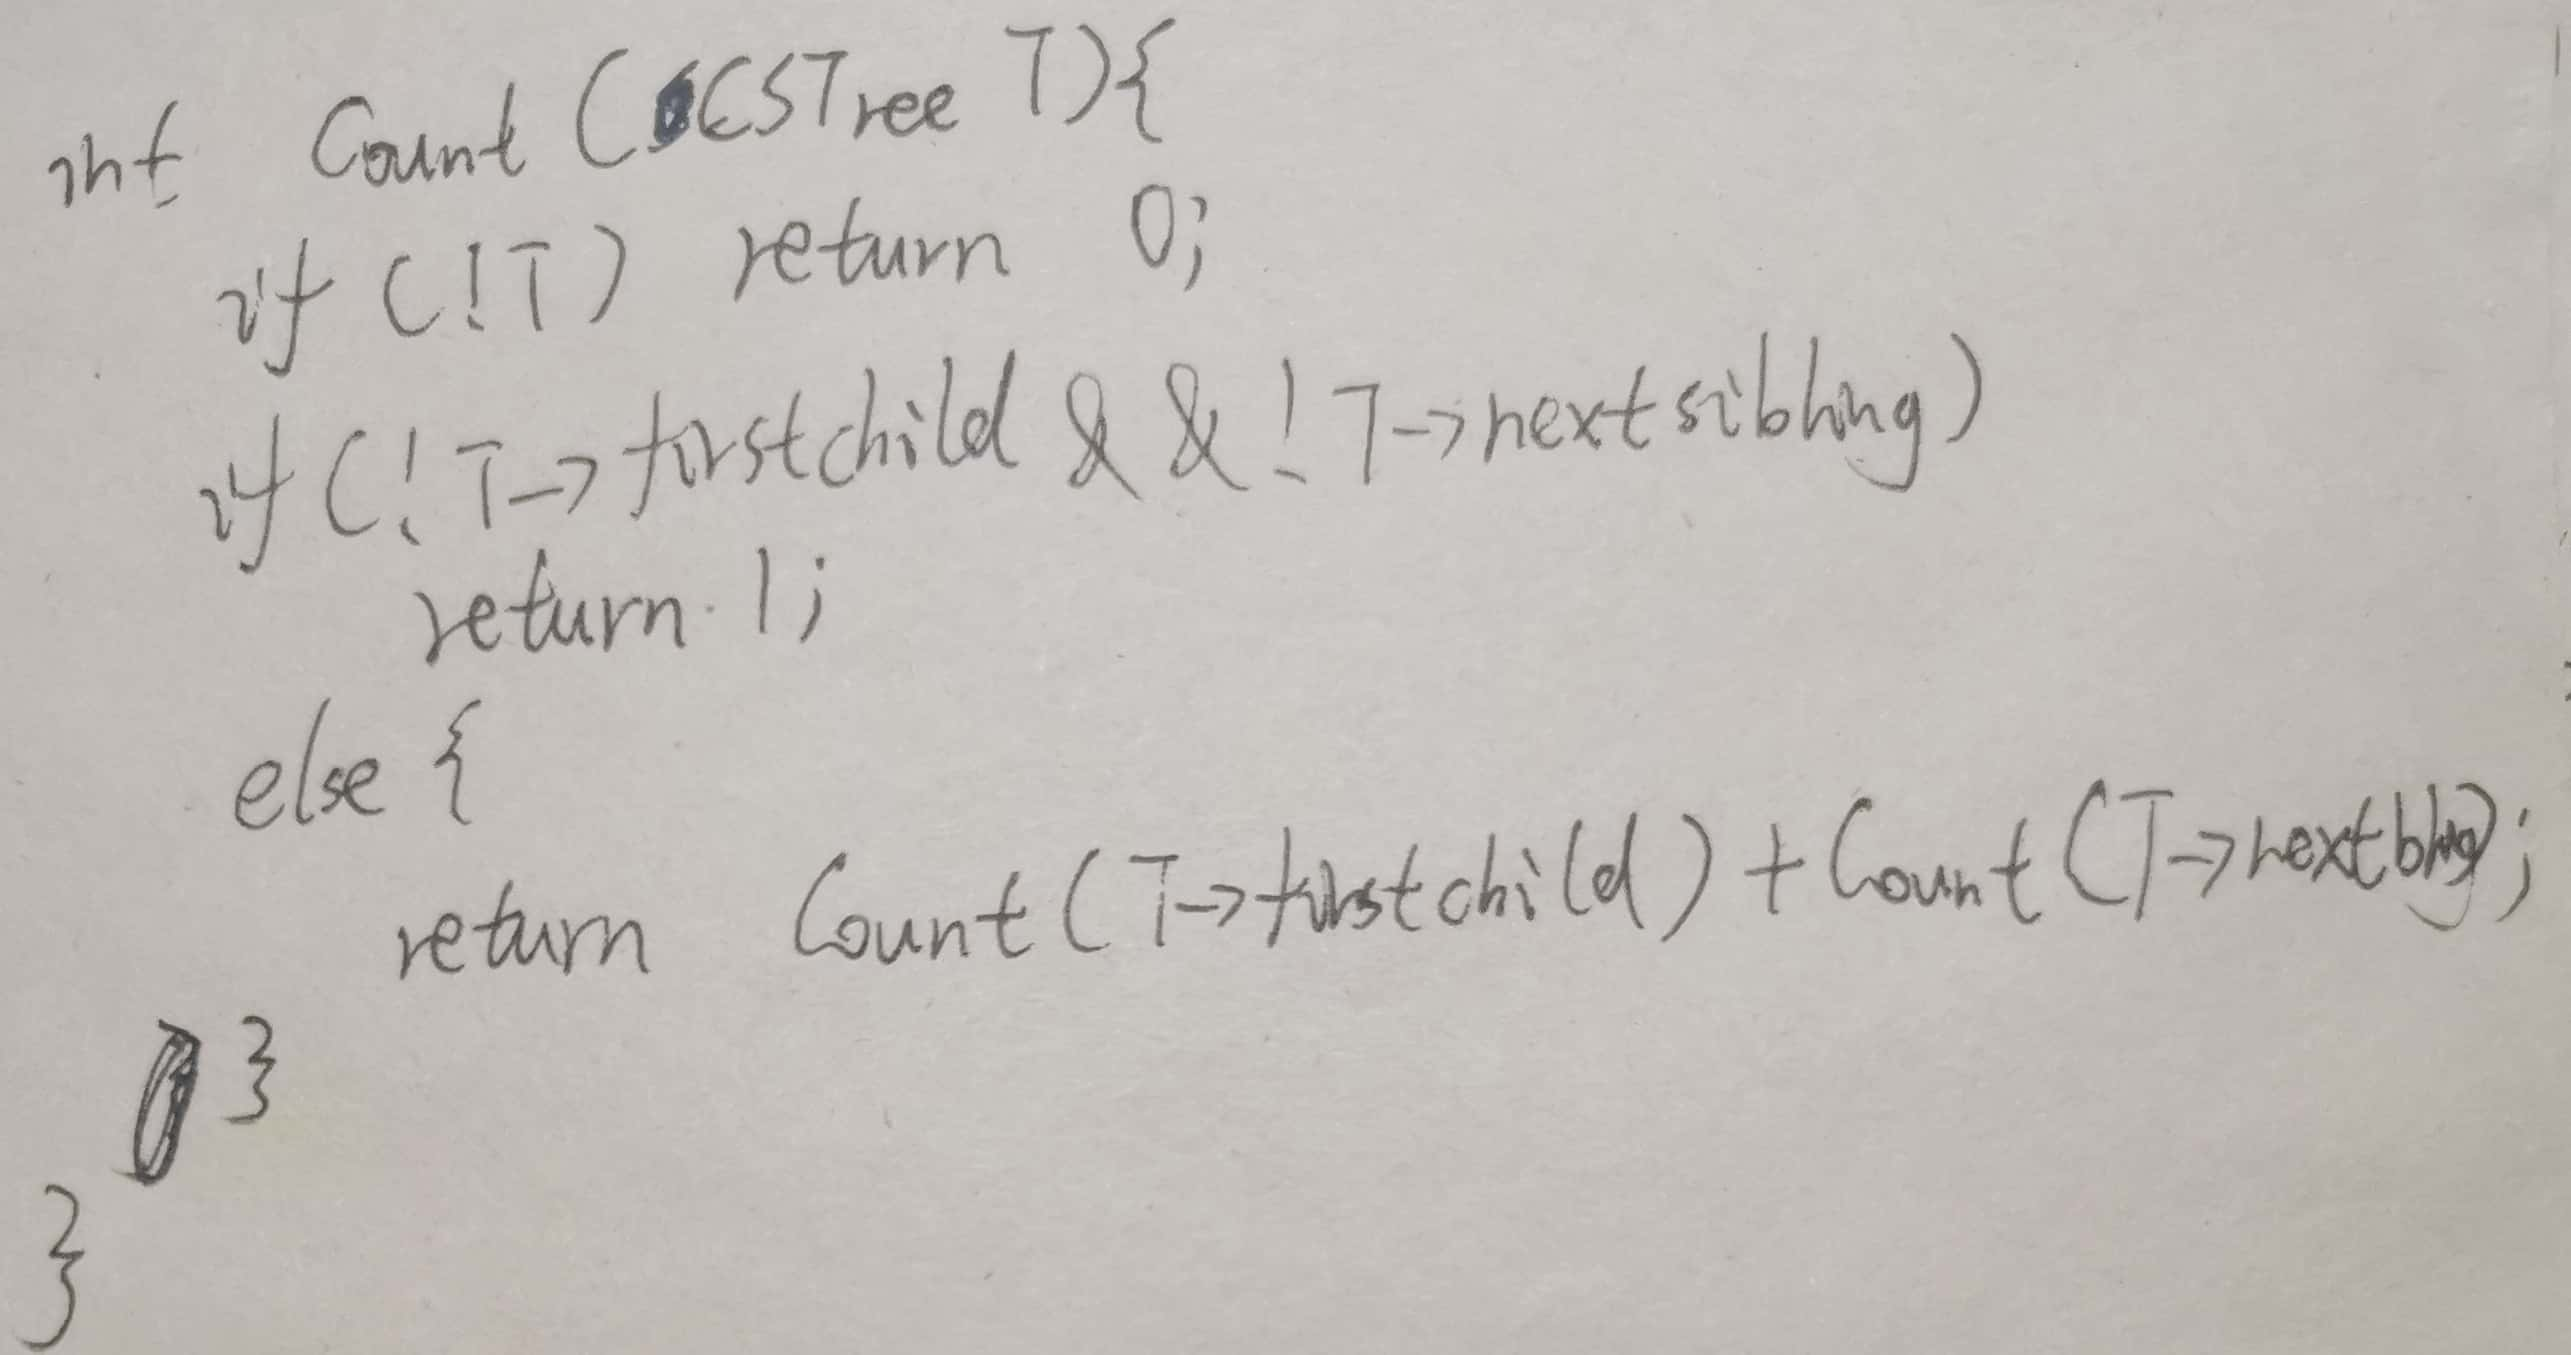 int Count (CSTree T){
if (!T) return 0;
if (!T->firstchild && !T->nextsibling)
return 1;
else {
return Count(T->firstchild) + Count(T->nextbling);
}
}